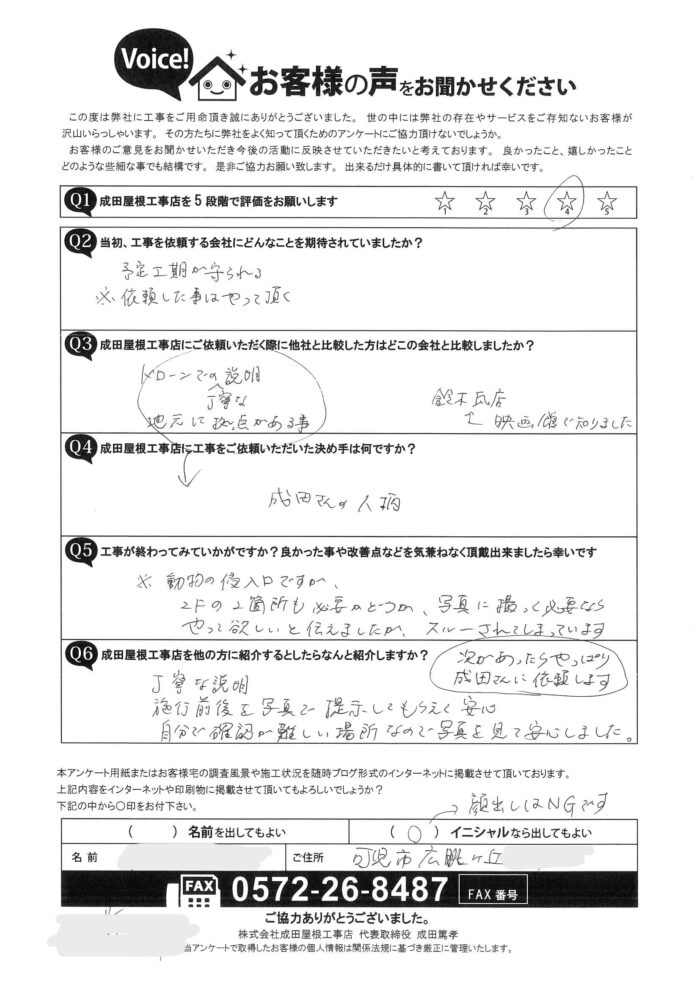 Voice!
お客様の声をお聞かせください
この度は弊社に工事をご用命頂き誠にありがとうございました。 世の中には弊社の存在やサービスをご存知ないお客様が
沢山いらっしゃいます。 その方たちに弊社をよく知って頂くためのアンケートにご協力頂けないでしょうか。
お客様のご意見をお聞かせいただき今後の活動に反映させていただきたいと考えております。 良かったこと、嬉しかったこと
どのような些細な事でも結構です。 是非ご協力お願い致します。 出来るだけ具体的に書いて頂ければ幸いです。
Q1 成田屋根工事店を5段階で評価をお願いします 1 2 3 4 5
Q2 当初、工事を依頼する会社にどんなことを期待されていましたか？
予定工期が守られる
※依頼した事はやって頂く
Q3 成田屋根工事店にご依頼いただく際に他社と比較した方はどこの会社と比較しましたか？
ドローンでの説明
丁寧な
地元に拠点がある事
鈴木瓦店
映画館で知りました
Q4 成田屋根工事店に工事をご依頼いただいた決め手は何ですか？
成田さんの人柄
Q5 工事が終わってみていかがですか？良かった事や改善点などを気兼ねなく頂戴出来ましたら幸いです
※ 動物の侵入口ですが、
2Fの2箇所も必要かどうか、写真に撮って必要なら
やって欲しいと伝えましたが、スルーされてしまっています
Q6 成田屋根工事店を他の方に紹介するとしたらなんと紹介しますか？
次があったらやっぱり
成田さんに依頼します
丁寧な説明
施行前後を写真で提示してもらえて安心
自分で確認が難しい場所なので写真を見て安心しました。
本アンケート用紙またはお客様宅の調査風景や施工状況を随時ブログ形式のインターネットに掲載させて頂いております。
上記内容をインターネットや印刷物に掲載させて頂いてもよろしいでしょうか？
下記の中から〇印をお付下さい。
顔出しはNGです
（　　）名前を出してもよい
（ 〇 ）イニシャルなら出してもよい
名前
ご住所 可児市広眺ヶ丘
FAX 0572-26-8487 FAX番号
ご協力ありがとうございました。
株式会社成田屋根工事店 代表取締役 成田篤孝
当アンケートで取得したお客様の個人情報は関係法規に基づき厳正に管理いたします。